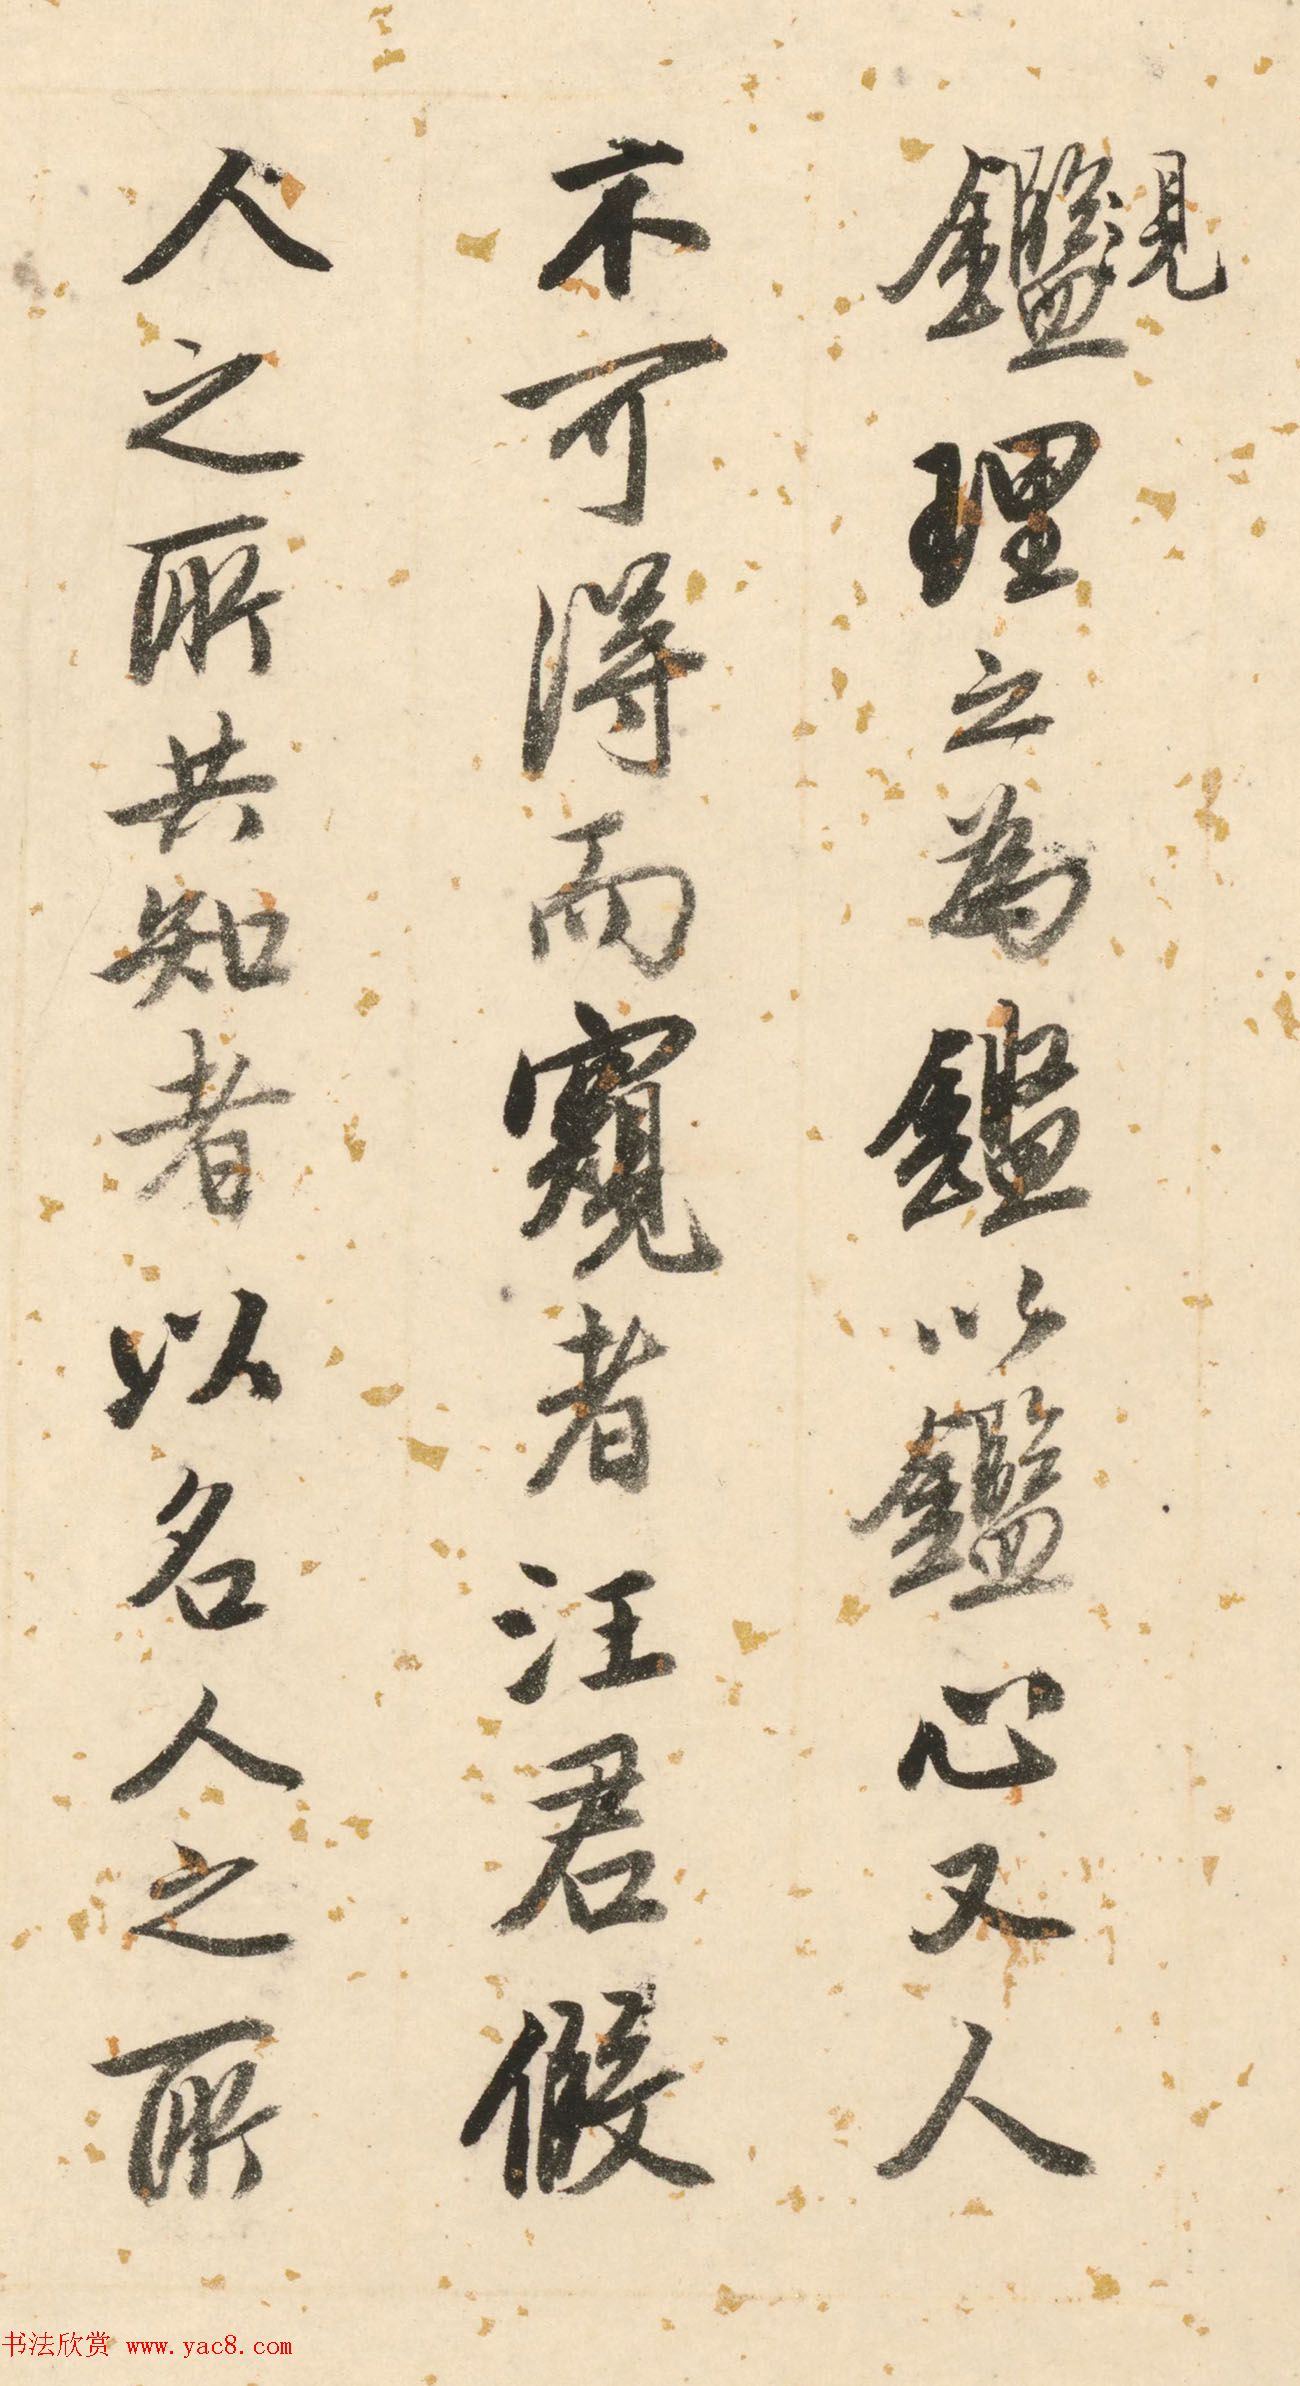 鑑見理之為鑑以鑑心又人
不可得而窺者汪君假
人之所共知者以名人之所
书法欣赏 www.yac8.com